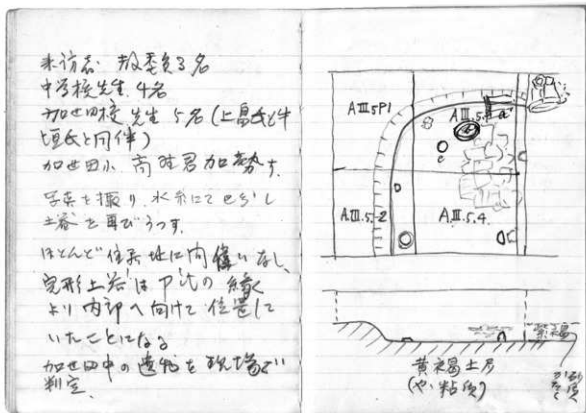 来訪者 教委員3名
中学校先生 4名
加世田校先生 5名(上畠氏と中
頃氏と同伴)
加世田小 高 君加勢す
写真を撮り、水糸にて し
土器を再びうつす。
ほとんど住居址に間違いなし、
完形土器はPitの縁
より内部へ向けて位置して
いたことになる
加世田中の遺物を現場で
判定。
AⅢ5P1
AⅢ.5.
a'
c
AⅢ.5.2
AⅢ.5.4
紫褐
黄褐土層
(やゝ粘質)